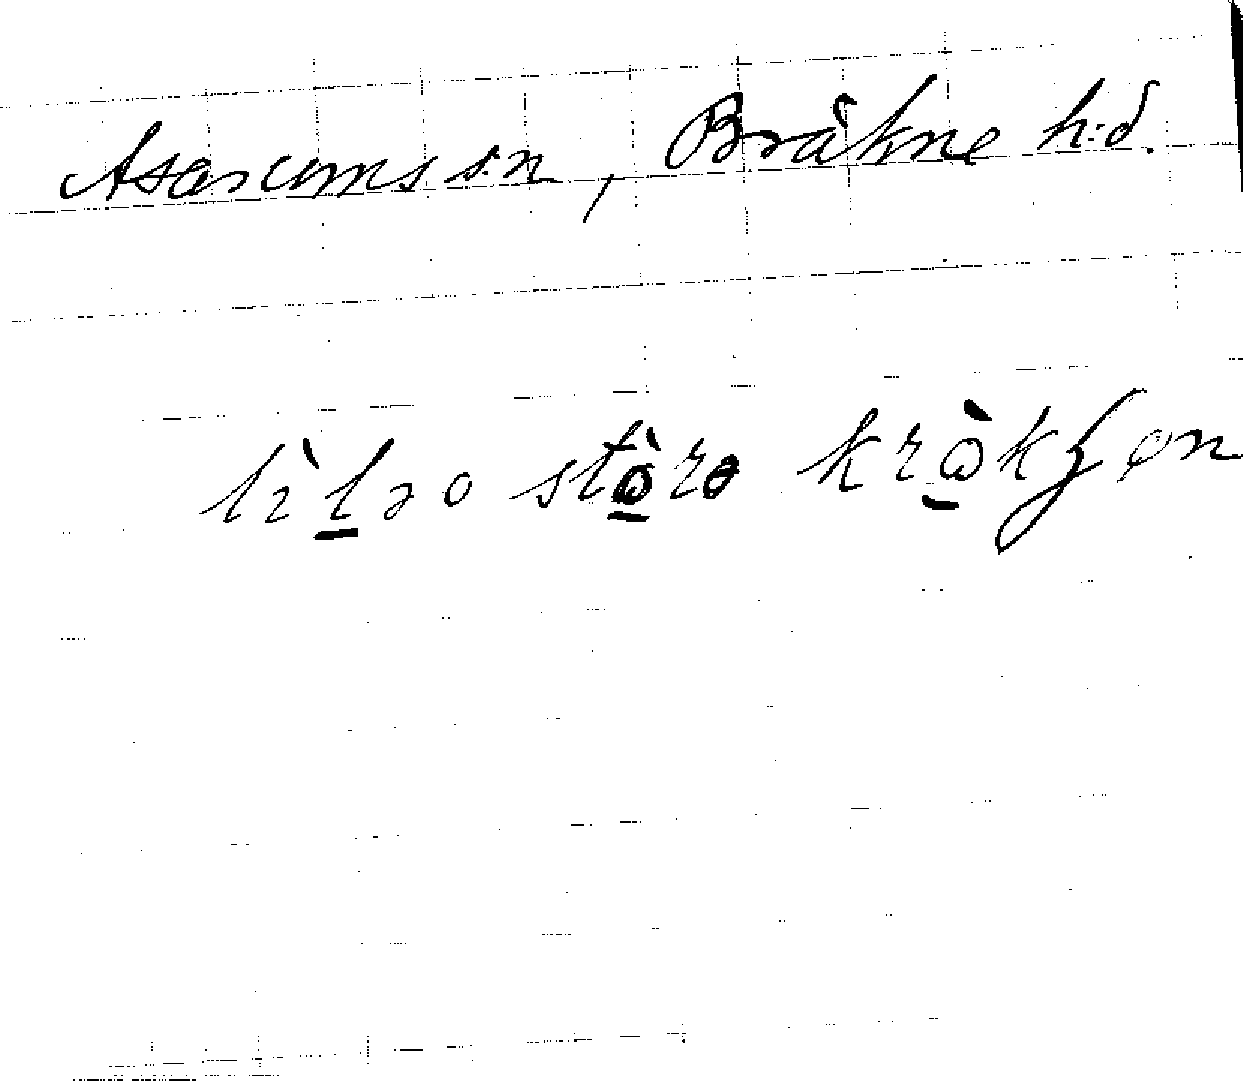 Asarums sn, Bräkne h:d.
lìlɘ o stòrɘ kròkʒøn